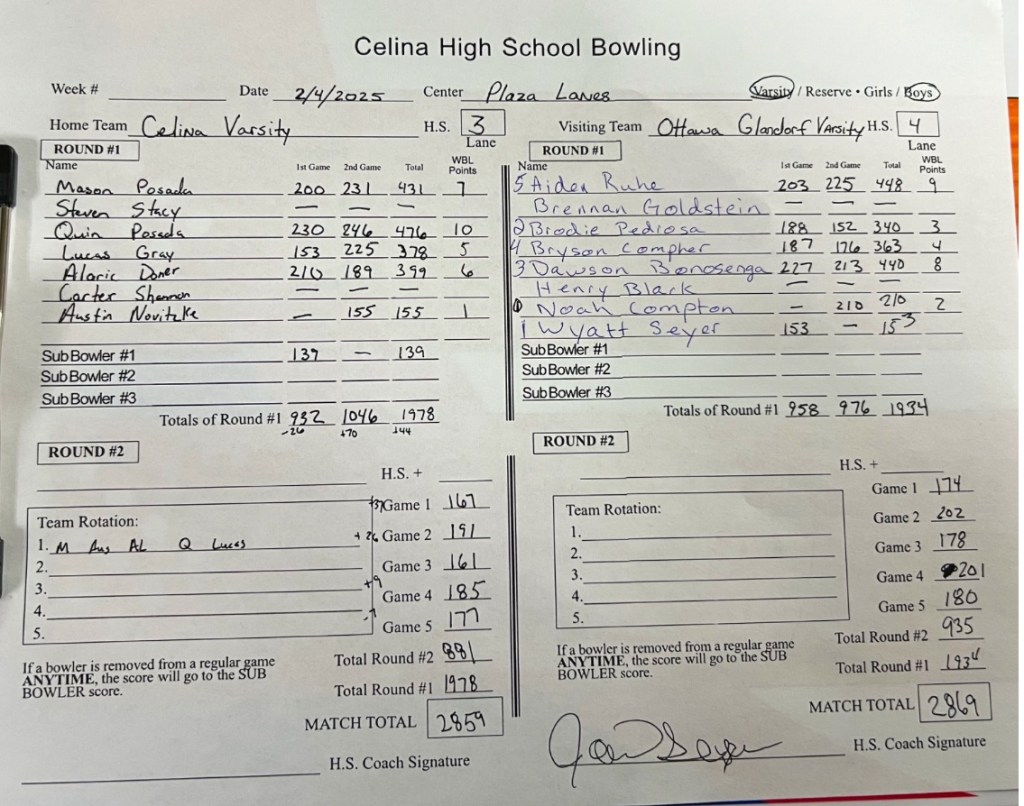 Celina High School Bowling
Week # Date 2/4/2025 Center Plaza Lanes Varsity / Reserve • Girls / Boys
Home Team Celina Varsity H.S. 3 Lane
ROUND #1
Name 1st Game 2nd Game Total WBL Points
Mason Posada 200 231 431 7
Steven Stacy — — —
Quin Posada 230 246 476 10
Lucas Gray 153 225 378 5
Alaric Doner 210 189 399 6
Carter Shannon — — —
Austin Novitzke — 155 155 1
Sub Bowler #1 139 — 139
Sub Bowler #2
Sub Bowler #3
Totals of Round #1 932 1046 1978
-26 +70 +44
ROUND #2
H.S. +
Team Rotation:
1. M Aus AL Q Lucas
2.
3.
4.
5.
Game 1 167
+26 Game 2 191
Game 3 161
+9 Game 4 185
-7 Game 5 177
If a bowler is removed from a regular game
ANYTIME, the score will go to the SUB
BOWLER score.
Total Round #2 881
Total Round #1 1978
MATCH TOTAL 2859
H.S. Coach Signature
Visiting Team Ottawa Glandorf Varsity H.S. 4 Lane
ROUND #1
Name 1st Game 2nd Game Total WBL Points
5 Aiden Ruhe 203 225 448 9
Brennan Goldstein — — —
2 Brodie Pedrosa 188 152 340 3
4 Bryson Compher 187 176 363 4
3 Dawson Bonosenga 227 213 440 8
Henry Black — — —
Noah Compton — 210 210 2
1 Wyatt Seyer 153 — 153
Sub Bowler #1
Sub Bowler #2
Sub Bowler #3
Totals of Round #1 958 976 1934
ROUND #2
H.S. +
Team Rotation:
1.
2.
3.
4.
5.
Game 1 174
Game 2 202
Game 3 178
Game 4 201
Game 5 180
If a bowler is removed from a regular game
ANYTIME, the score will go to the SUB
BOWLER score.
Total Round #2 935
Total Round #1 1934
MATCH TOTAL 2869
H.S. Coach Signature